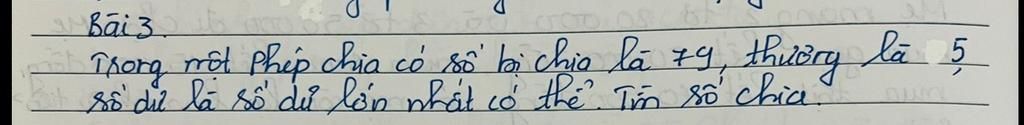 Bài 3.
Trong một phép chia có số bị chia là 79, thương là 5,
số dư là số dư lớn nhất có thể. Tìm số chia.